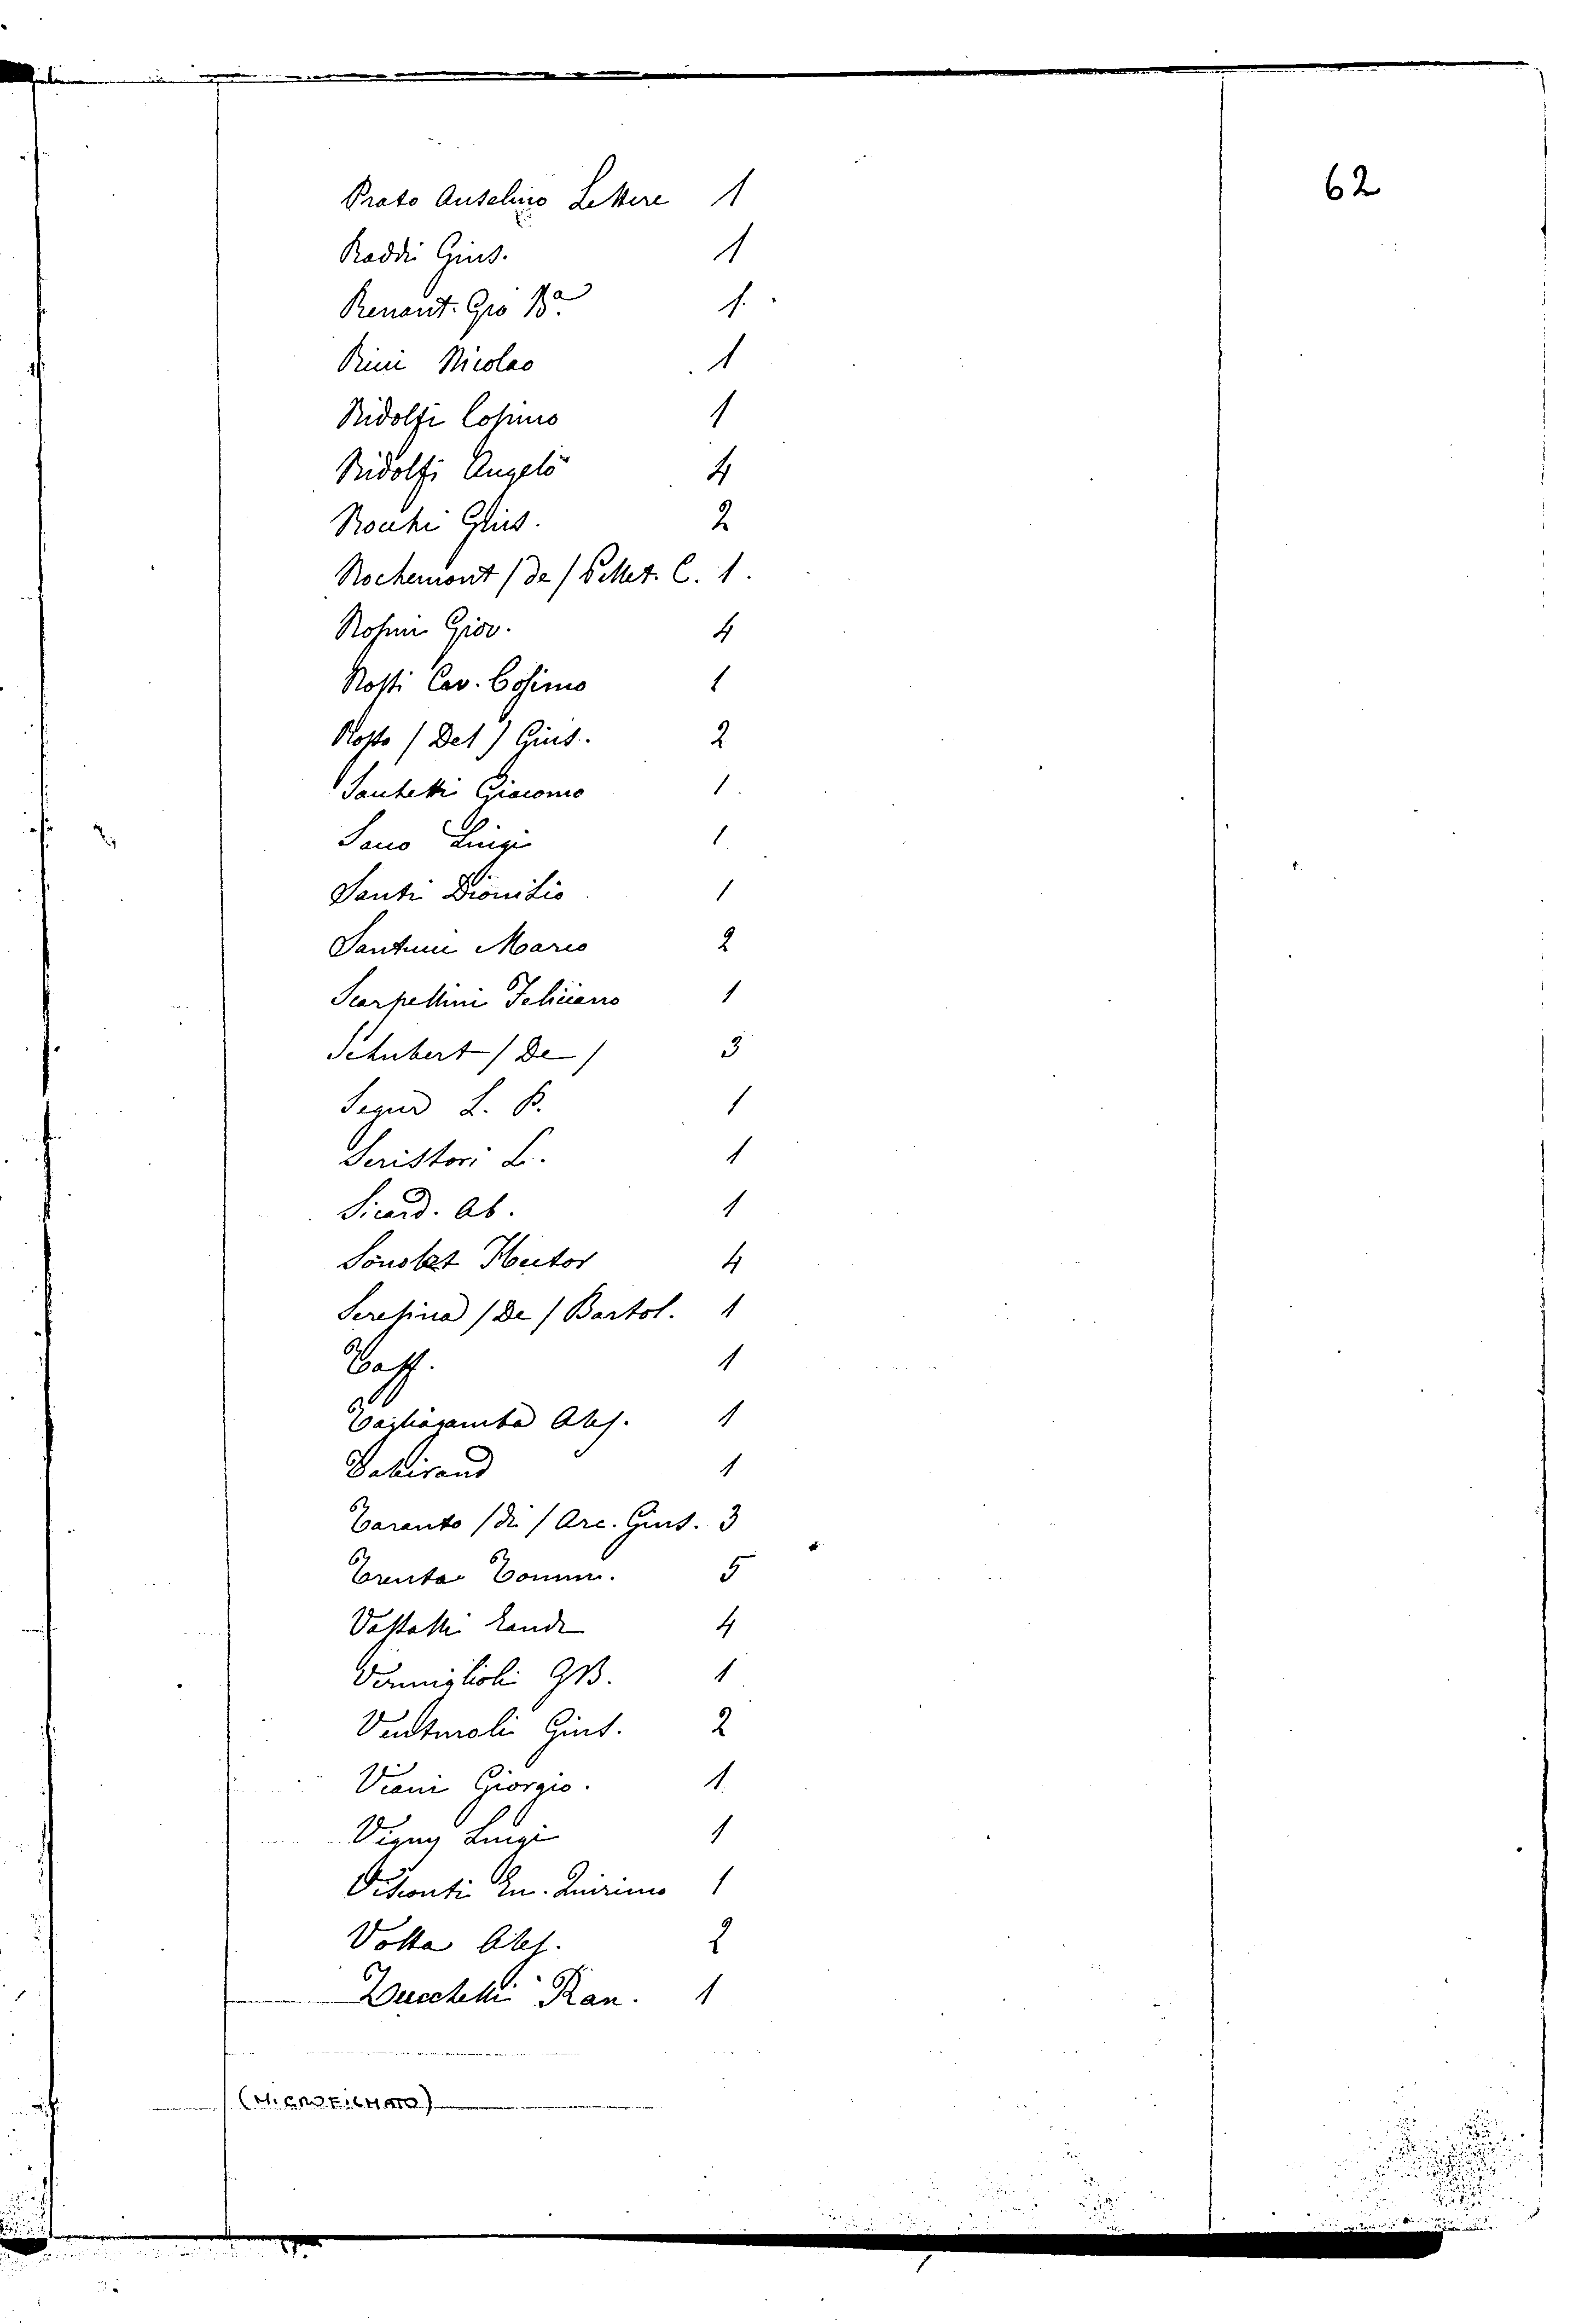 62
Prato Anselmo Lettere 1
Raddi Gius. 1
Renard. Gio Ba. 1.
Rini Nicolao 1
Ridolfi Cosimo 1
Ridolfi Angelo 4
Ronchi Gius. 2
Rochemont / de / Pittet. C. 1.
Rosini Giov. 4
Rossi Cav. Cosimo 1
Rosso / Del / Gius. 2
Giacomo 1.
Sano Luigi 1
Santi Dionisio 1
Santini Mario 2
Scarpellini Feliciano 1
Schubert / De / 3
Segur L. P. 1
Seristori L. 1
Sicard. Ab. 1
Hector 4
Seresina / De / Bartol. 1
1
Tagliagamba Ales. 1
1
Taranto / di / Arc. Gius. 3
Trenta Tomm. 5
4
Vermiglioli GB. 1
Venturoli Gius. 2
Viani Giorgio. 1
Vigny Luigi 1
Visconti En. Quirino 1
Volta Ales. 2
Zucchelli Ran. 1
(MICROFILMATO)